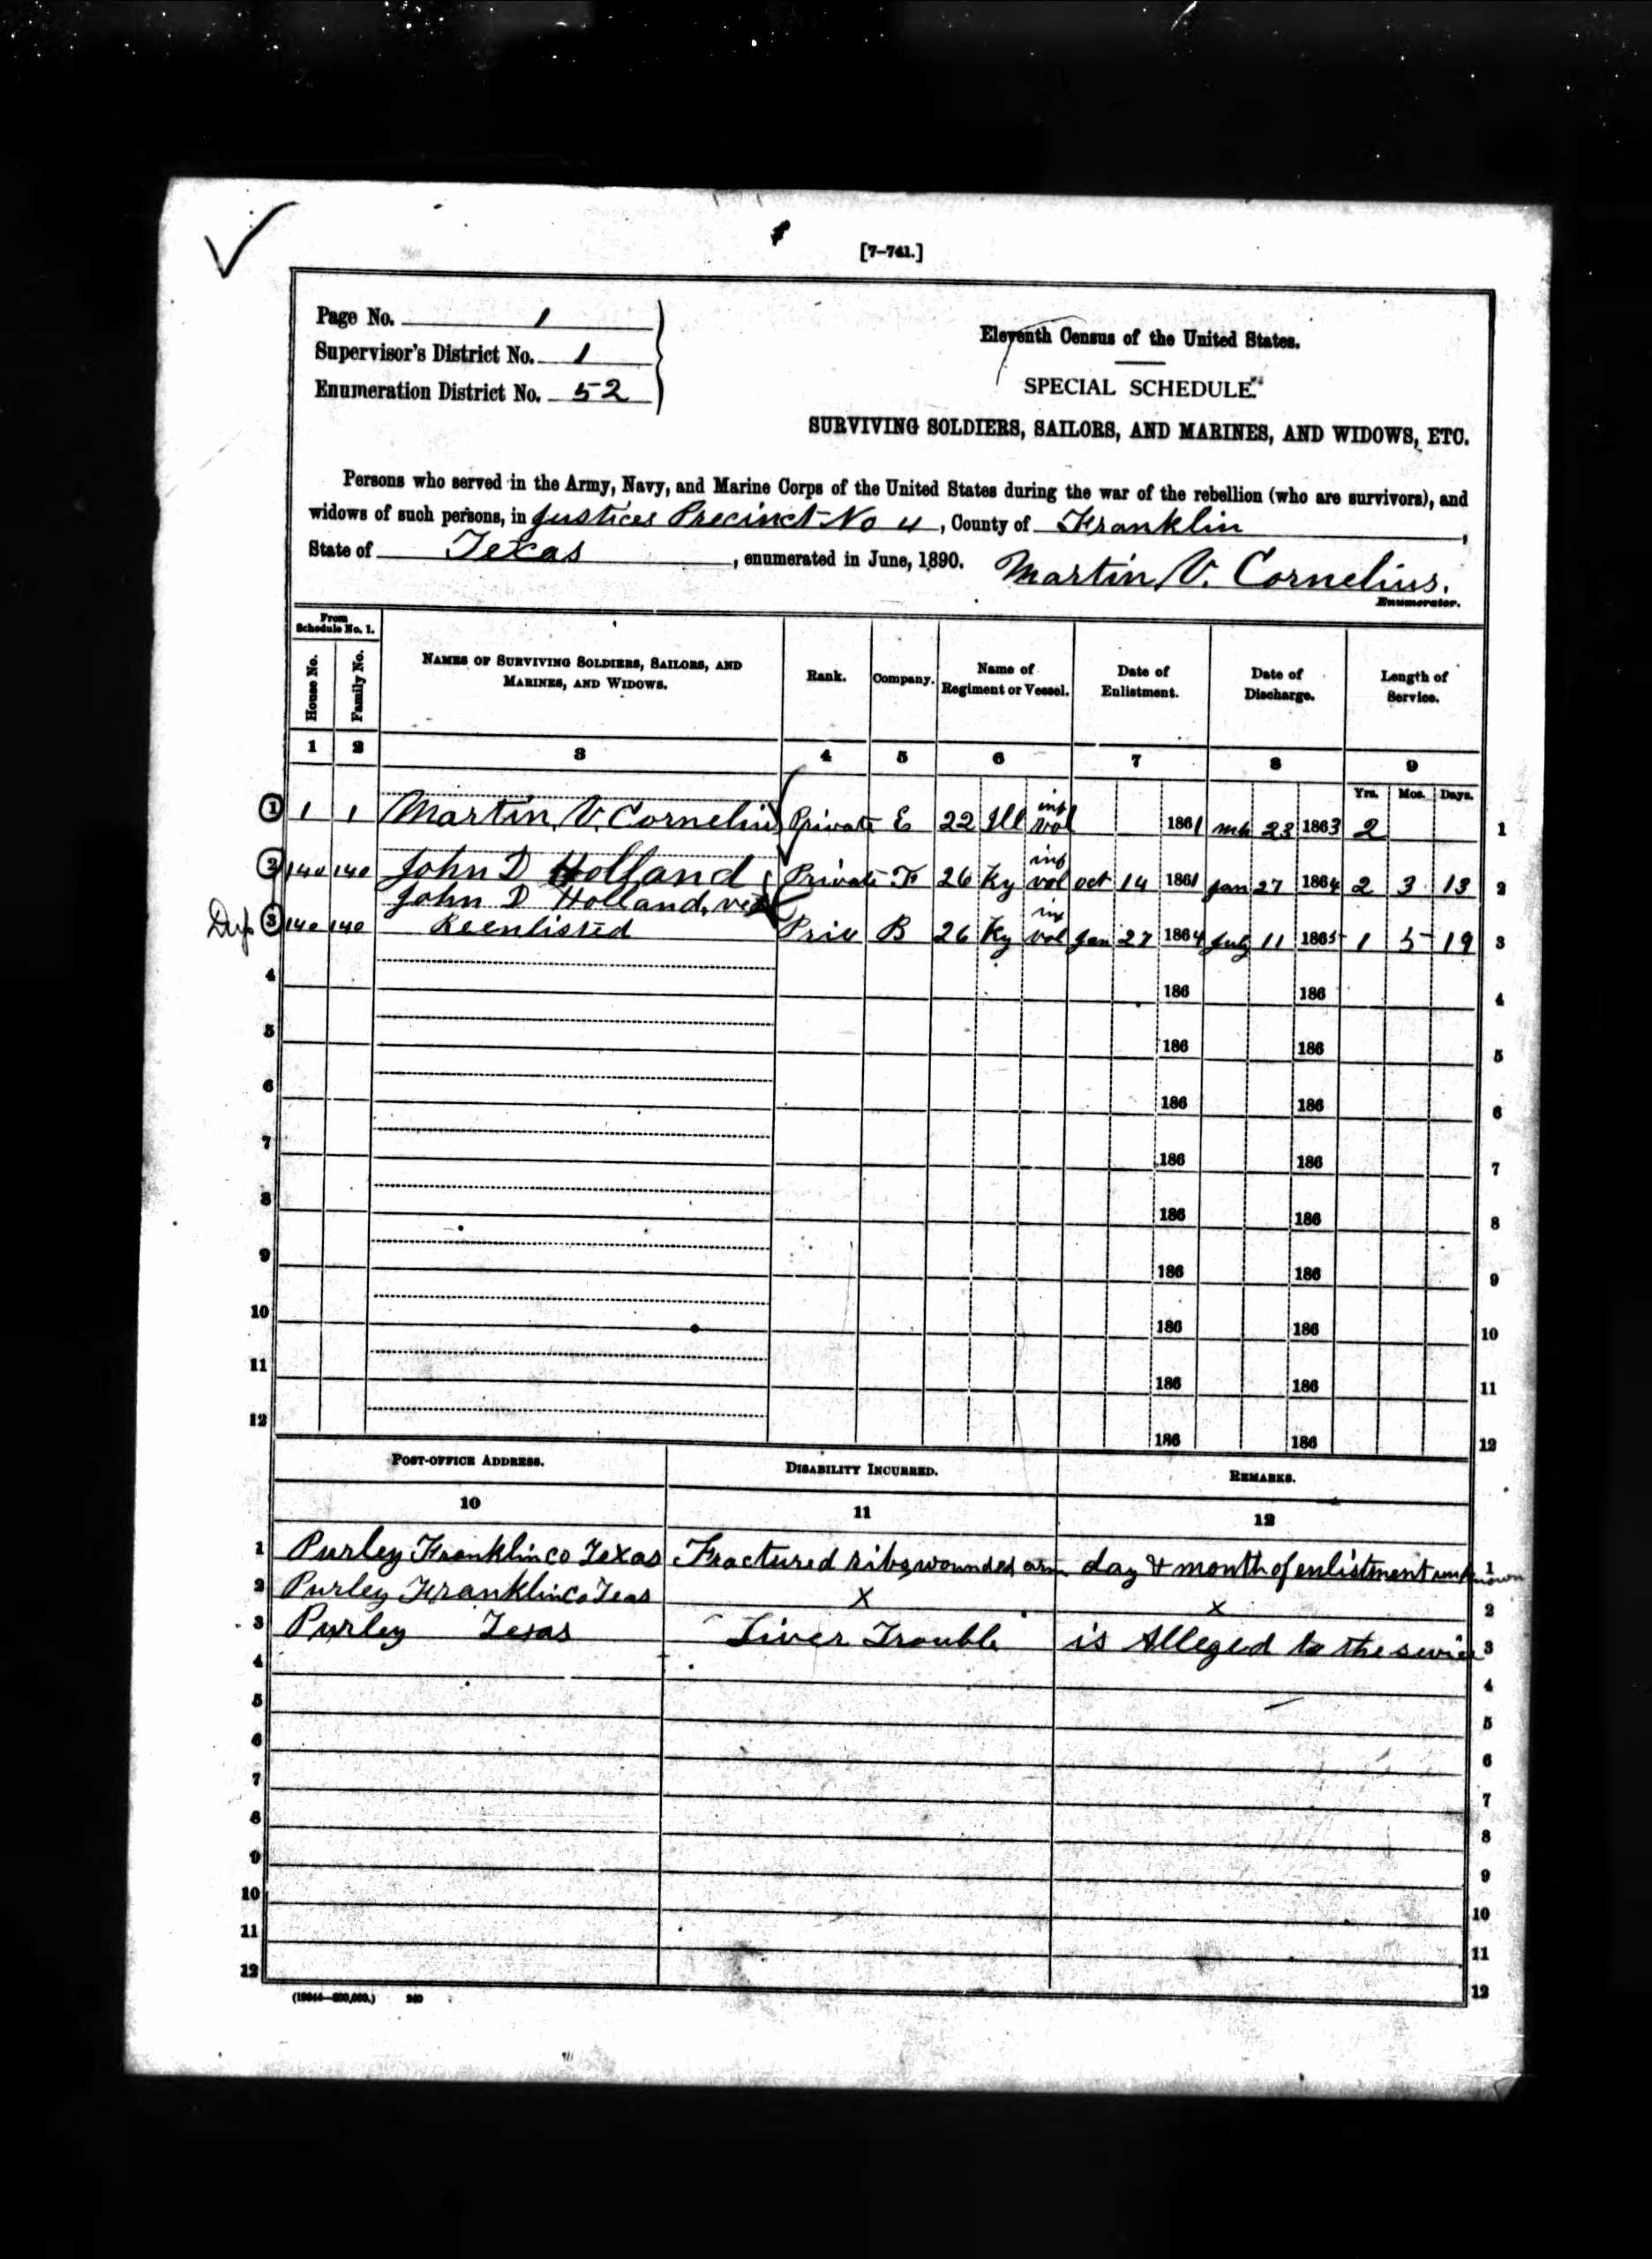 [7-741.]
Page No. 1
Supervisor's District No. 1
Enumeration District No. 52
Eleventh Census of the United States.
SPECIAL SCHEDULE.
SURVIVING SOLDIERS, SAILORS, AND MARINES, AND WIDOWS, ETC.
Persons who served in the Army, Navy, and Marine Corps of the United States during the war of the rebellion (who are survivors), and
widows of such persons, in Justices Precinct No 4, County of Franklin,
State of Texas, enumerated in June, 1890. Martin V. Cornelius.
Enumerator.
From Schedule No. 1.
House No. Family No. NAMES OF SURVIVING SOLDIERS, SAILORS, AND MARINES, AND WIDOWS. Rank. Company. Name of Regiment or Vessel. Date of Enlistment. Date of Discharge. Length of Service.
1 2 3 4 5 6 7 8 9
Yrs. Mos. Days.
1 1 1 Martin V. Cornelius Private E 22 Ill inf vol 1861 mh 23 1863 2 1
2 140 140 John D Holland Private F 26 Ky inf vol oct 14 1861 Jan 27 1864 2 3 13 2
John D Holland, vet
Dup 3 140 140 Reenlisted Priv B 26 Ky inf vol Jan 27 1864 July 11 1865 1 5 19 3
4 186 186 4
5 186 186 5
6 186 186 6
7 186 186 7
8 186 186 8
9 186 186 9
10 186 186 10
11 186 186 11
12 186 186 12
POST-OFFICE ADDRESS. DISABILITY INCURRED. REMARKS.
10 11 12
1 Purley Franklin co Texas Fractured ribs, wounded arm day & month of enlistment unknown 1
2 Purley Franklin Co Teas X x 2
3 Purley Texas Liver Trouble is Alleged to the 3
4 4
5 5
6 6
7 7
8 8
9 9
10 10
11 11
12 12